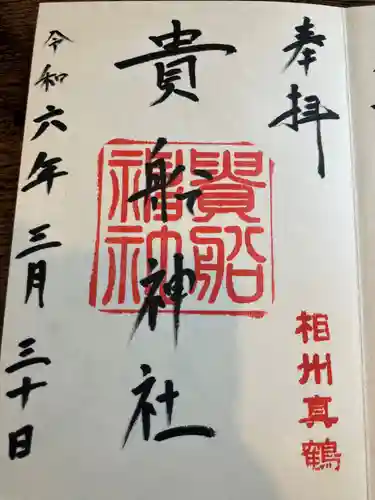 奉拝
相州真鶴
貴船神社
貴船
神社
令和六年三月三十日